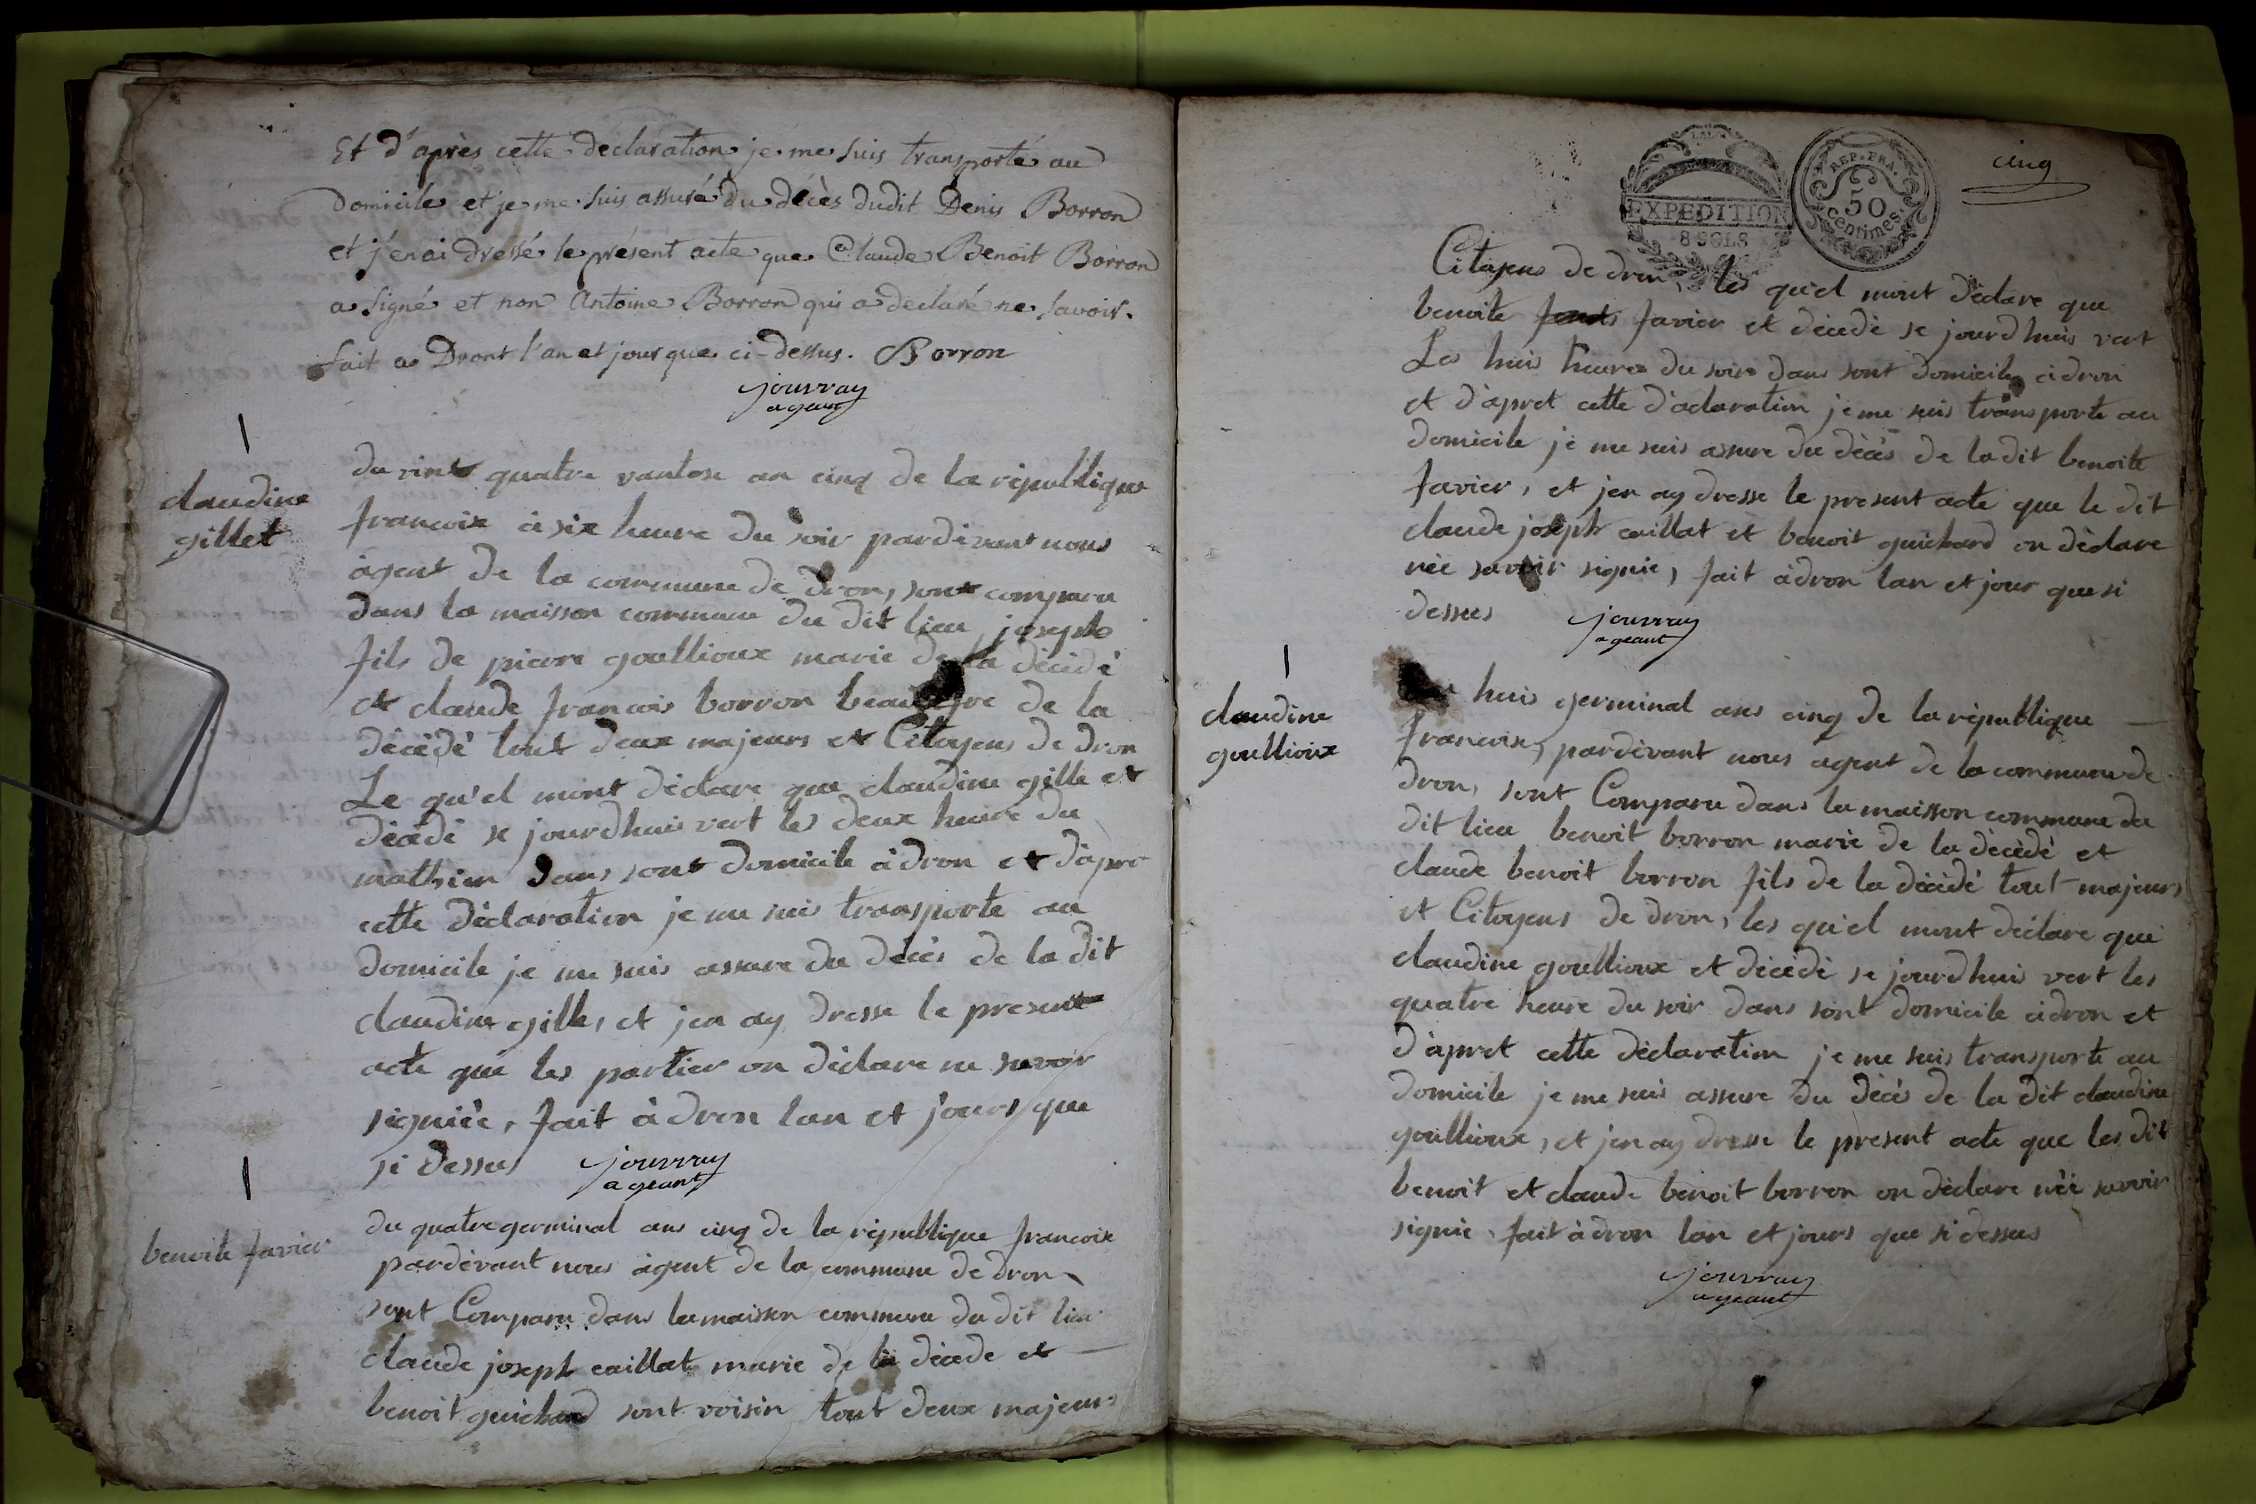 Et d'après cette déclaration je me suis transporté au
Domicile et je me suis assuré du décès dudit Denis Borron
et j'en ai dressé le présent acte que Claude Benoit Borron
a signé et non Antoine Borron qui a declaré ne savoir.
fait a Dront l'an et jour que ci-dessus. Borron
jouvray
ageant
claudine
gillet
du vint quatre vantose an cinq de la république
francoise à six heure du soir pardevant nous
àgent de la commune de dron, sont comparu
dans la maisson commune du dit lieu, joseph
fils de pierre goullioux marie de la décédé
et claude francois borron de la
décédé tout deux majeurs et Citoyens de dron
Le qu'el mont déclare que claudine gille et
décédé se jourdhuis vert les deux heure du
mathien dans sont domicile à dron et d'apre
cette déclaration je me suis transporte au
domicile je me suis assure du décès de la dit
claudine gille, et jen ay dresse le present
acte que les partier on déclare ne savoir
signiée, fait à dron lan et jours que
si dessus jouvray
ageant
benoite favier
du quatre germinal ans cinq de la république francoise
pardevant nous àgent de la commune de dron
sont Comparu dans la maisson commune du dit lieu
claude joseph caillat marie de la décede et
benoit guichard sont voisin tout deux majeurs
EXPEDITION
8 SOLS
REP. FRA.
50
centimes
cinq
Citoyens de dron, les qu'el mont déclare que
benoite favier et décedé se jourdhuis vert
Les huis heures du soire dans sont domicile à dron
et d'apret cette d'aclaration je me suis transporte au
domicile je me suis assure du décès de la dit benoite
favier, et jen ay dresse le present acte que le dit
claude joseph caillat et benoit guichard on déclare
née savoir signie, fait à dron lan et jour que si
dessus jouvray
ageant
claudine
goullioux
huis germinal ans cinq de la république
francoise, pardevant nous agent de la commune de
dron, sont Comparu dans la maisson commune du
dit lieu benoit borron marie de la décédé et
claude benoit borron fils de la décédé tout majeurs
et Citoyens de dron, les qu'el mont déclare que
claudine goullioux et décédé se jourdhuis vert les
quatre heure du soir dans sont domicile à dron et
d'apret cette déclaration je me suis transporte au
domicile je me suis assure du décés de la dit claudine
goullioux, et jen ay dresse le present acte que les dit
benoit et claude benoit borron on déclare née savoir
signie, fait à dron lan et jours que si dessus
jouvray
ageant